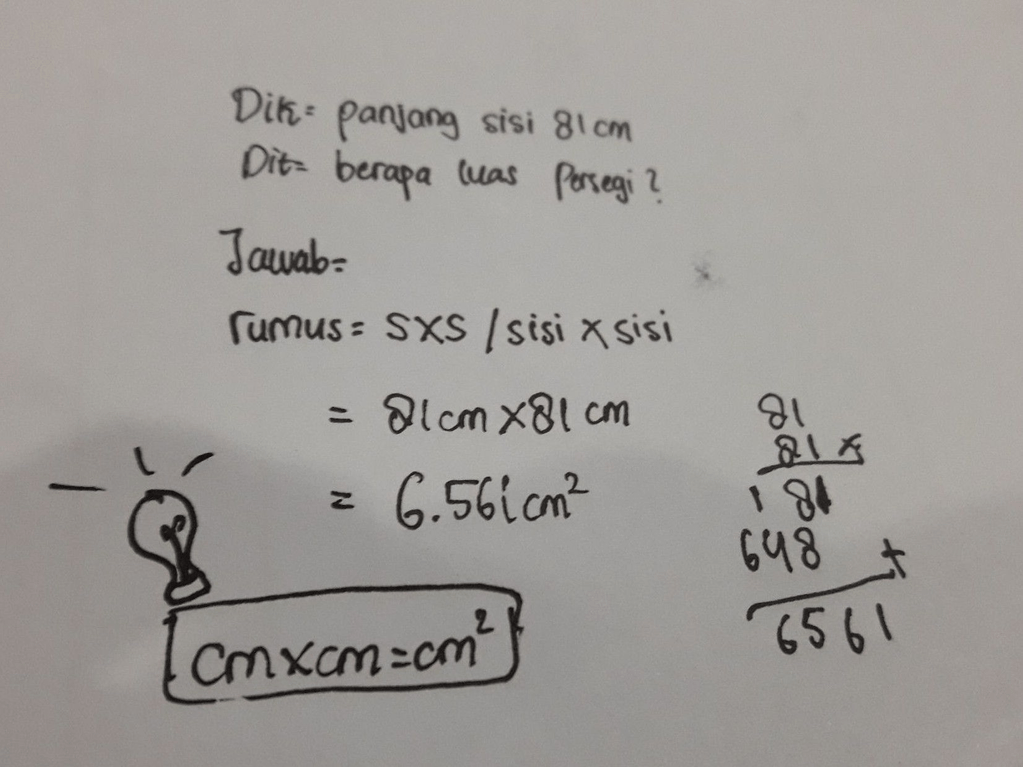 Dik= panjang sisi 81 cm
Dit= berapa luas persegi?
Jawab=
rumus= SXS / sisi x sisi
= 81 cm x 81 cm
= 6.561 cm²
cm x cm = cm²
81
81 x
1 81
648 +
6561